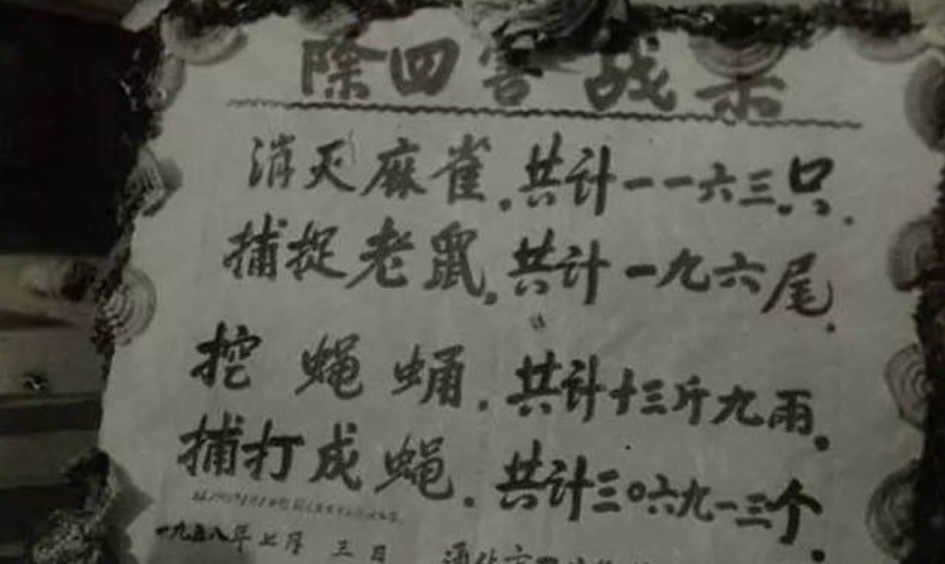 除四害战
消灭麻雀.共计一一六三只.
捕捉老鼠.共计一九六尾.
挖蝇蛹.共计十三斤九两.
捕打成蝇.共计三〇六九一三个.
一九五八年七月三日